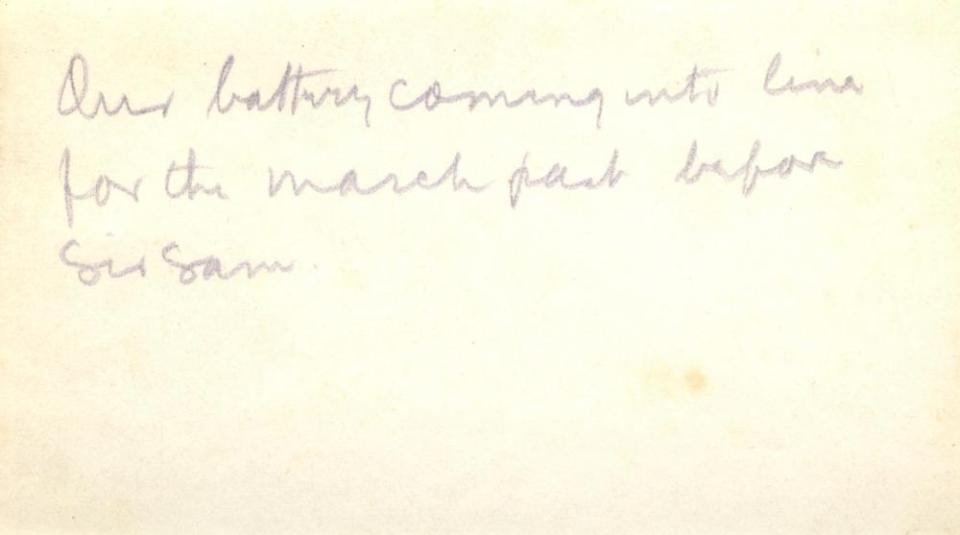 Our battery coming into line
for the march past before
Sir Sam.